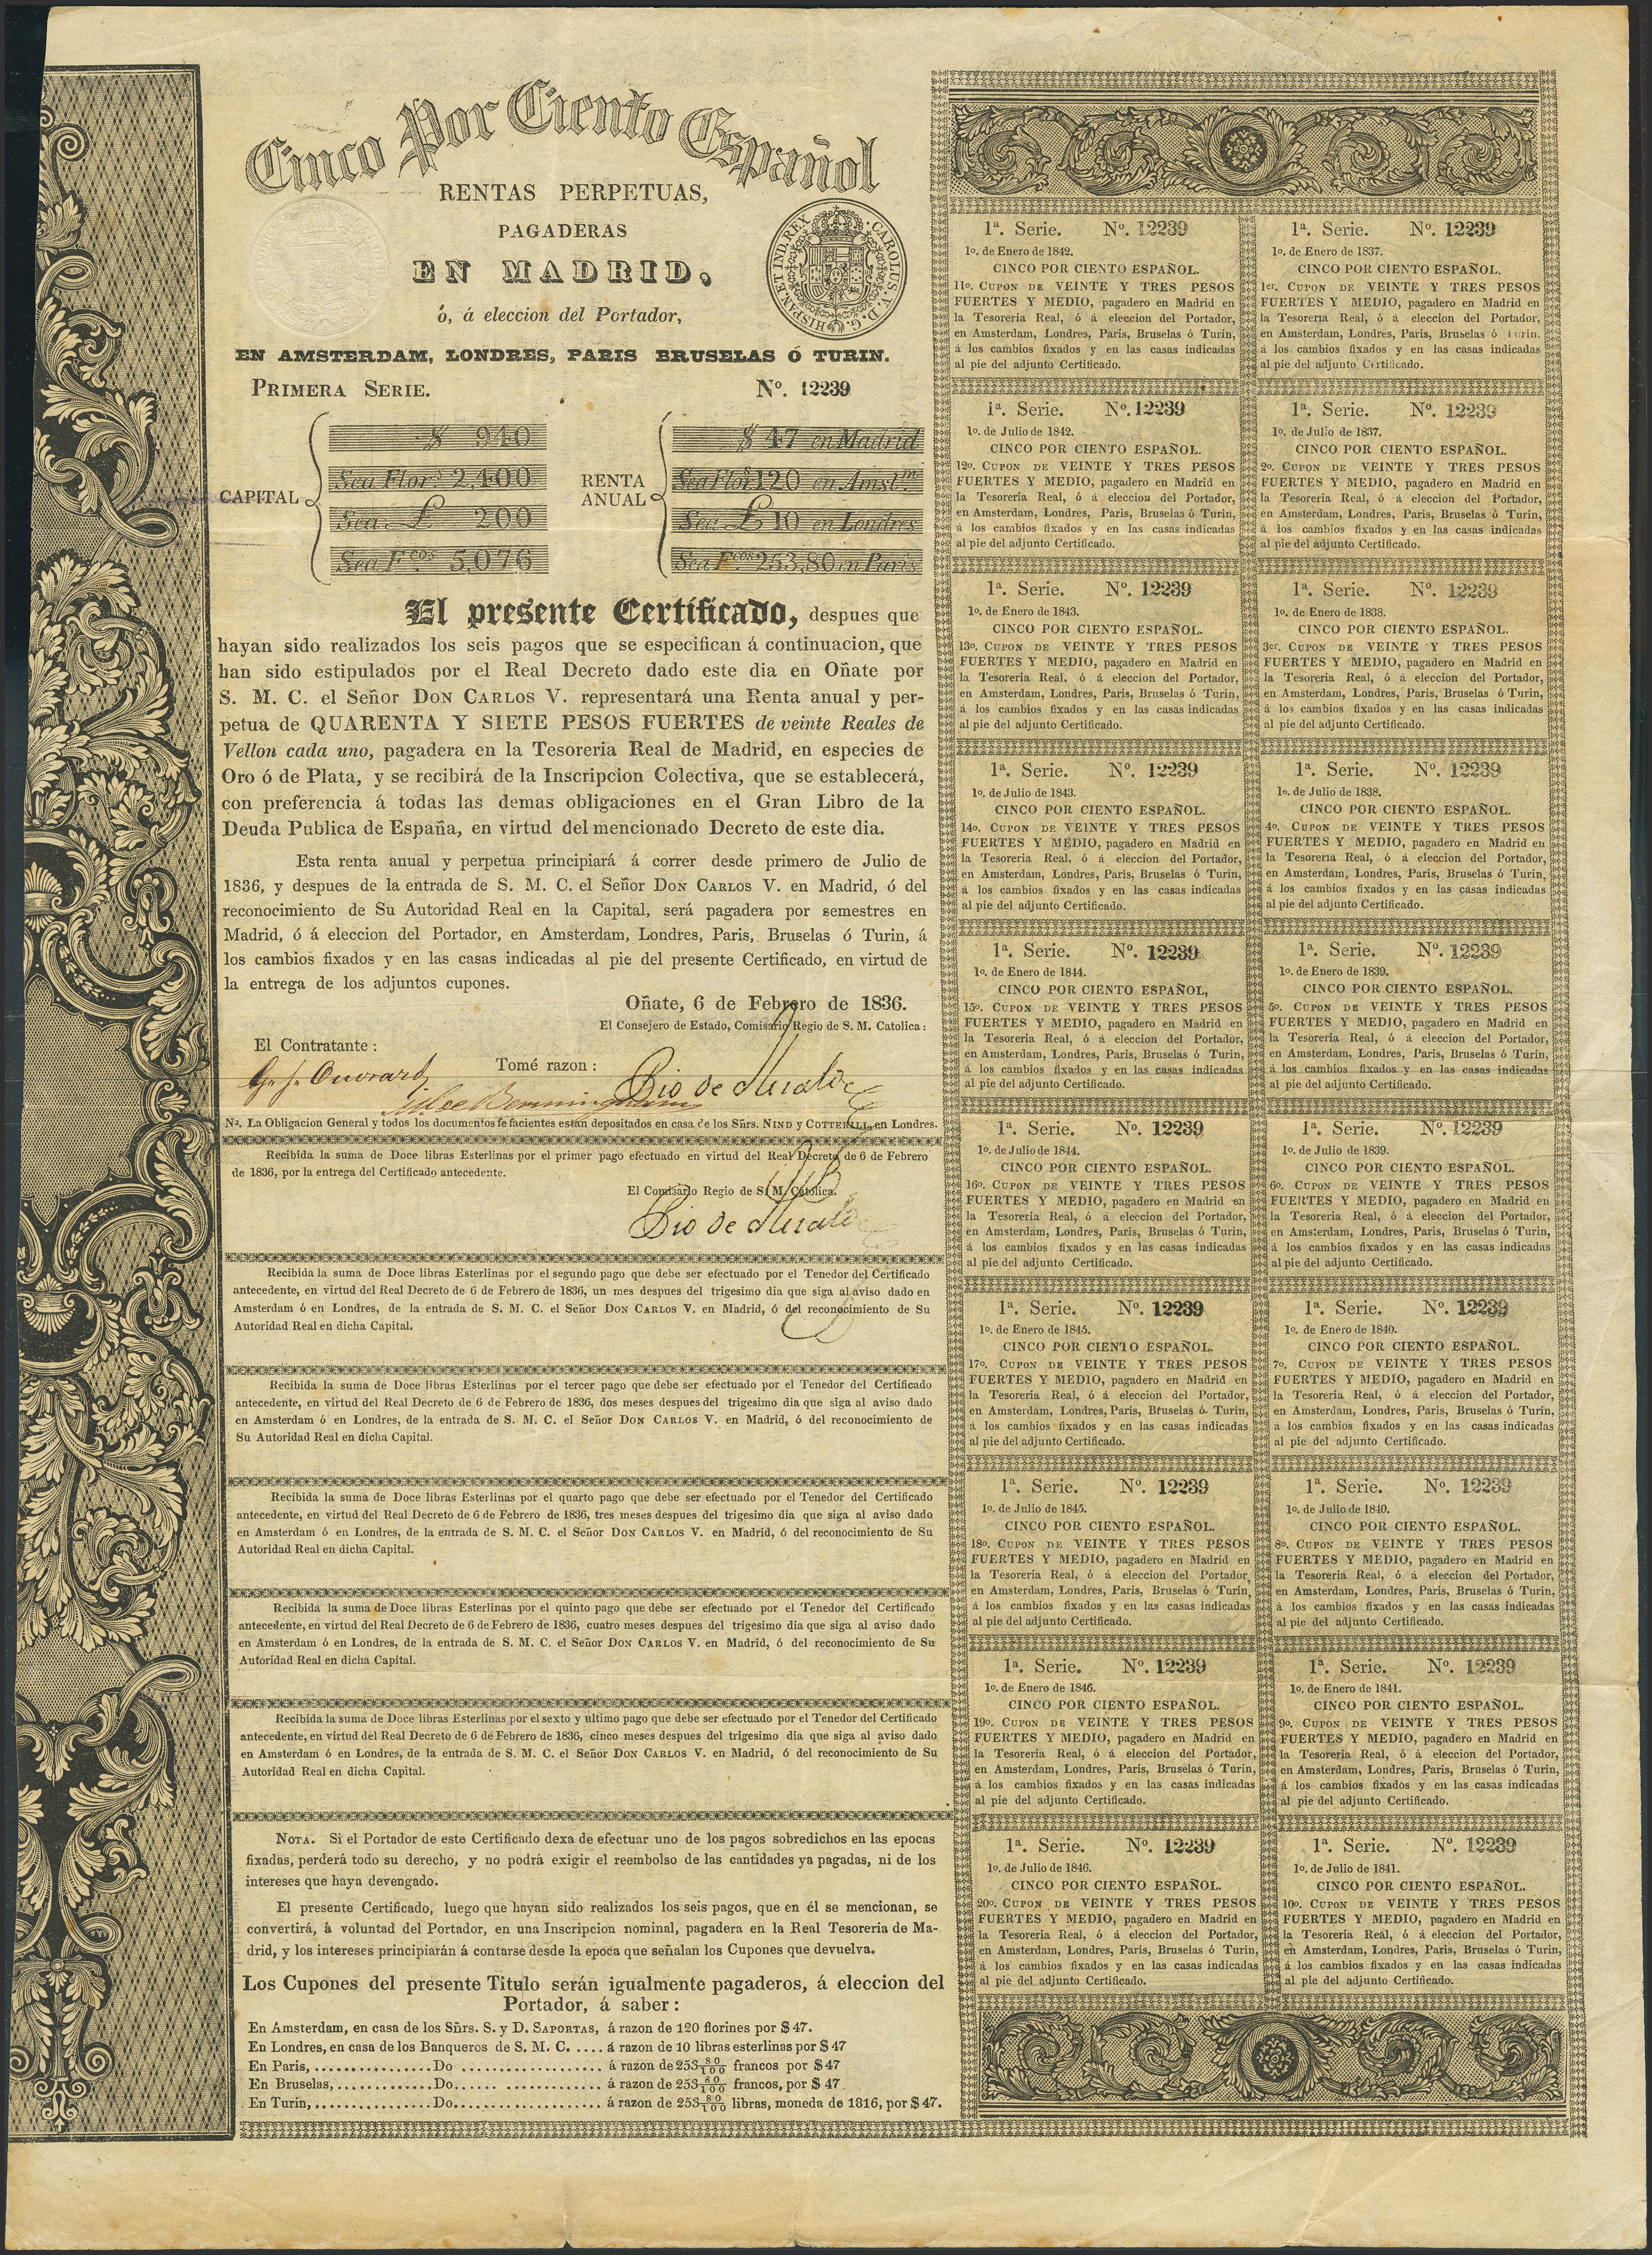 Cinco Por Ciento Español
RENTAS PERPETUAS,
PAGADERAS
EN MADRID,
ó, á eleccion del Portador,
EN AMSTERDAM, LONDRES, PARIS BRUSELAS Ó TURIN.
CAROLUS. V. D. G. HISPAN. ET IND. REX
PRIMERA SERIE. Nº. 12239
CAPITAL
$ 940
Sea Flors 2,400
Sea £ 200
Sea Fcos 5,076
RENTA
ANUAL
$ 47 en Madrid
Sea Flos 120 en Amstm
Sea £ 10 en Londres
Sea Fcos 253,80 en Paris
El presente Certificado, despues que
hayan sido realizados los seis pagos que se especifican á continuacion, que
han sido estipulados por el Real Decreto dado este dia en Oñate por
S. M. C. el Señor DON CARLOS V. representará una Renta anual y per-
petua de QUARENTA Y SIETE PESOS FUERTES de veinte Reales de
Vellon cada uno, pagadera en la Tesoreria Real de Madrid, en especies de
Oro ó de Plata, y se recibirá de la Inscripcion Colectiva, que se establecerá,
con preferencia á todas las demas obligaciones en el Gran Libro de la
Deuda Publica de España, en virtud del mencionado Decreto de este dia.
Esta renta anual y perpetua principiará á correr desde primero de Julio de
1836, y despues de la entrada de S. M. C. el Señor DON CARLOS V. en Madrid, ó del
reconocimiento de Su Autoridad Real en la Capital, será pagadera por semestres en
Madrid, ó á eleccion del Portador, en Amsterdam, Londres, Paris, Bruselas ó Turin, á
los cambios fixados y en las casas indicadas al pie del presente Certificado, en virtud de
la entrega de los adjuntos cupones.
Oñate, 6 de Febrero de 1836.
El Consejero de Estado, Comisario Regio de S. M. Catolica:
El Contratante:
Tomé razon:
G. J. Ouvrard
Na. La Obligacion General y todos los documentos fe facientes estan depositados en casa de los Sñrs. NIND y COTTERILL, en Londres.
Recibida la suma de Doce libras Esterlinas por el primer pago efectuado en virtud del Real Decreto de 6 de Febrero
de 1836, por la entrega del Certificado antecedente.
El Comisario Regio de S. M. Catolica.
Recibida la suma de Doce libras Esterlinas por el segundo pago que debe ser efectuado por el Tenedor del Certificado
antecedente, en virtud del Real Decreto de 6 de Febrero de 1836, un mes despues del trigesimo dia que siga al aviso dado en
Amsterdam ó en Londres, de la entrada de S. M. C. el Señor DON CARLOS V. en Madrid, ó del reconocimiento de Su
Autoridad Real en dicha Capital.
Recibida la suma de Doce libras Esterlinas por el tercer pago que debe ser efectuado por el Tenedor del Certificado
antecedente, en virtud del Real Decreto de 6 de Febrero de 1836, dos meses despues del trigesimo dia que siga al aviso dado
en Amsterdam ó en Londres, de la entrada de S. M. C. el Señor DON CARLOS V. en Madrid, ó del reconocimiento de
Su Autoridad Real en dicha Capital.
Recibida la suma de Doce libras Esterlinas por el quarto pago que debe ser efectuado por el Tenedor del Certificado
antecedente, en virtud del Real Decreto de 6 de Febrero de 1836, tres meses despues del trigesimo dia que siga al aviso dado
en Amsterdam ó en Londres, de la entrada de S. M. C. el Señor DON CARLOS V. en Madrid, ó del reconocimiento de Su
Autoridad Real en dicha Capital.
Recibida la suma de Doce libras Esterlinas por el quinto pago que debe ser efectuado por el Tenedor del Certificado
antecedente, en virtud del Real Decreto de 6 de Febrero de 1836, cuatro meses despues del trigesimo dia que siga al aviso dado
en Amsterdam ó en Londres, de la entrada de S. M. C. el Señor DON CARLOS V. en Madrid, ó del reconocimiento de Su
Autoridad Real en dicha Capital.
Recibida la suma de Doce libras Esterlinas por el sexto y ultimo pago que debe ser efectuado por el Tenedor del Certificado
antecedente, en virtud del Real Decreto de 6 de Febrero de 1836, cinco meses despues del trigesimo dia que siga al aviso dado
en Amsterdam ó en Londres, de la entrada de S. M. C. el Señor DON CARLOS V. en Madrid, ó del reconocimiento de Su
Autoridad Real en dicha Capital.
NOTA. Si el Portador de este Certificado dexa de efectuar uno de los pagos sobredichos en las epocas
fixadas, perderá todo su derecho, y no podrá exigir el reembolso de las cantidades ya pagadas, ni de los
intereses que haya devengado.
El presente Certificado, luego que hayan sido realizados los seis pagos, que en él se mencionan, se
convertirá, á voluntad del Portador, en una Inscripcion nominal, pagadera en la Real Tesoreria de Ma-
drid, y los intereses principiarán á contarse desde la epoca que señalan los Cupones que devuelva.
Los Cupones del presente Titulo serán igualmente pagaderos, á eleccion del
Portador, á saber:
En Amsterdam, en casa de los Sñrs. S. y D. SAPORTAS, á razon de 120 florines por $ 47.
En Londres, en casa de los Banqueros de S. M. C. .... á razon de 10 libras esterlinas por $ 47
En Paris, ................Do .................... á razon de 253 80/100 francos por $ 47
En Bruselas, .............Do...... ............. á razon de 253 80/100 francos, por $ 47.
En Turin, ................Do.................... á razon de 253 80/100 libras, moneda de 1816, por $ 47.
1a. Serie. Nº. 12239
1o. de Enero de 1842.
CINCO POR CIENTO ESPAÑOL.
11o. CUPON DE VEINTE Y TRES PESOS
FUERTES Y MEDIO, pagadero en Madrid en
la Tesoreria Real, ó á eleccion del Portador,
en Amsterdam, Londres, Paris, Bruselas ó Turin,
á los cambios fixados y en las casas indicadas
al pie del adjunto Certificado.
1a. Serie. Nº. 12239
1o. de Enero de 1837.
CINCO POR CIENTO ESPAÑOL.
1er. CUPON DE VEINTE Y TRES PESOS
FUERTES Y MEDIO, pagadero en Madrid en
la Tesoreria Real, ó á eleccion del Portador,
en Amsterdam, Londres, Paris, Bruselas ó Turin,
á los cambios fixados y en las casas indicadas
al pie del adjunto Certificado.
1a. Serie. Nº. 12239
1o. de Julio de 1842.
CINCO POR CIENTO ESPAÑOL.
12o. CUPON DE VEINTE Y TRES PESOS
FUERTES Y MEDIO, pagadero en Madrid en
la Tesoreria Real, ó á eleccion del Portador,
en Amsterdam, Londres, Paris, Bruselas ó Turin,
á los cambios fixados y en las casas indicadas
al pie del adjunto Certificado.
1a. Serie. Nº. 12239
1o. de Julio de 1837.
CINCO POR CIENTO ESPAÑOL.
2o. CUPON DE VEINTE Y TRES PESOS
FUERTES Y MEDIO, pagadero en Madrid en
la Tesoreria Real, ó á eleccion del Portador,
en Amsterdam, Londres, Paris, Bruselas ó Turin,
á los cambios fixados y en las casas indicadas
al pie del adjunto Certificado.
1a. Serie. Nº. 12239
1o. de Enero de 1843.
CINCO POR CIENTO ESPAÑOL.
13o. CUPON DE VEINTE Y TRES PESOS
FUERTES Y MEDIO, pagadero en Madrid en
la Tesoreria Real, ó á eleccion del Portador,
en Amsterdam, Londres, Paris, Bruselas ó Turin,
á los cambios fixados y en las casas indicadas
al pie del adjunto Certificado.
1a. Serie. Nº. 12239
1o. de Enero de 1838.
CINCO POR CIENTO ESPAÑOL.
3er. CUPON DE VEINTE Y TRES PESOS
FUERTES Y MEDIO, pagadero en Madrid en
la Tesoreria Real, ó á eleccion del Portador,
en Amsterdam, Londres, Paris, Bruselas ó Turin,
á los cambios fixados y en las casas indicadas
al pie del adjunto Certificado.
1a. Serie. Nº. 12239
1o. de Julio de 1843.
CINCO POR CIENTO ESPAÑOL.
14o. CUPON DE VEINTE Y TRES PESOS
FUERTES Y MEDIO, pagadero en Madrid en
la Tesoreria Real, ó á eleccion del Portador,
en Amsterdam, Londres, Paris, Bruselas ó Turin,
á los cambios fixados y en las casas indicadas
al pie del adjunto Certificado.
1a. Serie. Nº. 12239
1o. de Julio de 1838.
CINCO POR CIENTO ESPAÑOL.
4o. CUPON DE VEINTE Y TRES PESOS
FUERTES Y MEDIO, pagadero en Madrid en
la Tesoreria Real, ó á eleccion del Portador,
en Amsterdam, Londres, Paris, Bruselas ó Turin,
á los cambios fixados y en las casas indicadas
al pie del adjunto Certificado.
1a. Serie. Nº. 12239
1o. de Enero de 1844.
CINCO POR CIENTO ESPAÑOL,
15o. CUPON DE VEINTE Y TRES PESOS
FUERTES Y MEDIO, pagadero en Madrid en
la Tesoreria Real, ó á eleccion del Portador,
en Amsterdam, Londres, Paris, Bruselas ó Turin,
á los cambios fixados y en las casas indicadas
al pie del adjunto Certificado.
1a. Serie. Nº. 12239
1o. de Enero de 1839.
CINCO POR CIENTO ESPAÑOL.
5o. CUPON DE VEINTE Y TRES PESOS
FUERTES Y MEDIO, pagadero en Madrid en
la Tesoreria Real, ó á eleccion del Portador,
en Amsterdam, Londres, Paris, Bruselas ó Turin,
á los cambios fixados y en las casas indicadas
al pie del adjunto Certificado.
1a. Serie. Nº. 12239
1o. de Julio de 1844.
CINCO POR CIENTO ESPAÑOL.
16o. CUPON DE VEINTE Y TRES PESOS
FUERTES Y MEDIO, pagadero en Madrid en
la Tesoreria Real, ó á eleccion del Portador,
en Amsterdam, Londres, Paris, Bruselas ó Turin,
á los cambios fixados y en las casas indicadas
al pie del adjunto Certificado.
1a. Serie. Nº. 12239
1o. de Julio de 1839.
CINCO POR CIENTO ESPAÑOL.
6o. CUPON DE VEINTE Y TRES PESOS
FUERTES Y MEDIO, pagadero en Madrid en
la Tesoreria Real, ó á eleccion del Portador,
en Amsterdam, Londres, Paris, Bruselas ó Turin,
á los cambios fixados y en las casas indicadas
al pie del adjunto Certificado.
1a. Serie. Nº. 12239
1o. de Enero de 1845.
CINCO POR CIENTO ESPAÑOL.
17o. CUPON DE VEINTE Y TRES PESOS
FUERTES Y MEDIO, pagadero en Madrid en
la Tesoreria Real, ó á eleccion del Portador,
en Amsterdam, Londres, Paris, Bruselas ó Turin,
á los cambios fixados y en las casas indicadas
al pie del adjunto Certificado.
1a. Serie. Nº. 12239
1o. de Enero de 1840.
CINCO POR CIENTO ESPAÑOL.
7o. CUPON DE VEINTE Y TRES PESOS
FUERTES Y MEDIO, pagadero en Madrid en
la Tesoreria Real, ó á eleccion del Portador,
en Amsterdam, Londres, Paris, Bruselas ó Turin,
á los cambios fixados y en las casas indicadas
al pie del adjunto Certificado.
1a. Serie. Nº. 12239
1o. de Julio de 1845.
CINCO POR CIENTO ESPAÑOL.
18o. CUPON DE VEINTE Y TRES PESOS
FUERTES Y MEDIO, pagadero en Madrid en
la Tesoreria Real, ó á eleccion del Portador,
en Amsterdam, Londres, Paris, Bruselas ó Turin,
á los cambios fixados y en las casas indicadas
al pie del adjunto Certificado.
1a. Serie. Nº. 12239
1o. de Julio de 1840.
CINCO POR CIENTO ESPAÑOL.
8o. CUPON DE VEINTE Y TRES PESOS
FUERTES Y MEDIO, pagadero en Madrid en
la Tesoreria Real, ó á eleccion del Portador,
en Amsterdam, Londres, Paris, Bruselas ó Turin,
á los cambios fixados y en las casas indicadas
al pie del adjunto Certificado.
1a. Serie. Nº. 12239
1o. de Enero de 1846.
CINCO POR CIENTO ESPAÑOL.
19o. CUPON DE VEINTE Y TRES PESOS
FUERTES Y MEDIO, pagadero en Madrid en
la Tesoreria Real, ó á eleccion del Portador,
en Amsterdam, Londres, Paris, Bruselas ó Turin,
á los cambios fixados y en las casas indicadas
al pie del adjunto Certificado.
1a. Serie. Nº. 12239
1o. de Enero de 1841.
CINCO POR CIENTO ESPAÑOL.
9o. CUPON DE VEINTE Y TRES PESOS
FUERTES Y MEDIO, pagadero en Madrid en
la Tesoreria Real, ó á eleccion del Portador,
en Amsterdam, Londres, Paris, Bruselas ó Turin,
á los cambios fixados y en las casas indicadas
al pie del adjunto Certificado.
1a. Serie. Nº. 12239
1o. de Julio de 1846.
CINCO POR CIENTO ESPAÑOL.
20o. CUPON DE VEINTE Y TRES PESOS
FUERTES Y MEDIO, pagadero en Madrid en
la Tesoreria Real, ó á eleccion del Portador,
en Amsterdam, Londres, Paris, Bruselas ó Turin,
á los cambios fixados y en las casas indicadas
al pie del adjunto Certificado.
1a. Serie. Nº. 12239
1o. de Julio de 1841.
CINCO POR CIENTO ESPAÑOL.
10o. CUPON DE VEINTE Y TRES PESOS
FUERTES Y MEDIO, pagadero en Madrid en
la Tesoreria Real, ó á eleccion del Portador,
en Amsterdam, Londres, Paris, Bruselas ó Turin,
á los cambios fixados y en las casas indicadas
al pie del adjunto Certificado.